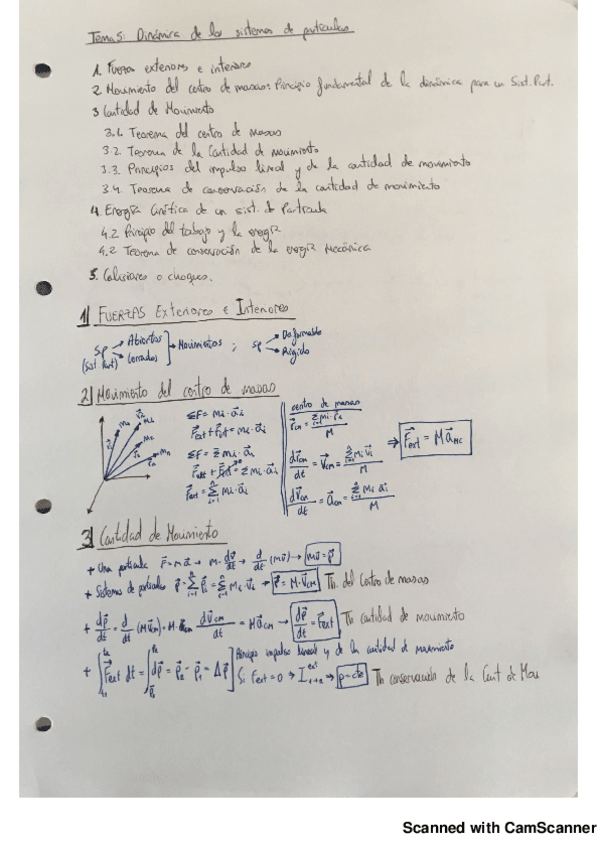 Tema 5: Dinámica de los sistemas de partículas
1. Fuerzas exteriores e interiores
2. Movimiento del centro de masas: Principio fundamental de la dinámica para un Sist. Part.
3. Cantidad de Movimiento
3.1. Teorema del centro de Masas
3.2. Teorema de la Cantidad de movimiento
3.3. Principios del impulso lineal y de la cantidad de movimiento
3.4. Teorema de conservación de la cantidad de movimiento
4. Energía Cinética de un sist. de Partícula
4.2 Principio del trabajo y la energía
4.2 Teorema de conservación de la energía Mecánica
5. Colisiones o choques.
1) FUERZAS Exteriores e Interiores
SP (Sist. Part) → Abiertos → Cerrados → Movimientos ; SP → Deformable → Rígido
2) Movimiento del centro de masas
ΣF = mi · ai
Fext + Fint = mi · ai
ΣF = Σ mi · ai
Fext + Fint = Σ mi · ai
Fext = Σ mi · ai
centro de masas
rCM = Σ mi · ri / M
drCM/dt = VCM = Σ mi vi / M
dvCM/dt = aCM = Σ mi ai / M
⇒ Fext = M aMC
3) Cantidad de Movimiento
+ Una partícula F = m a → m · dv/dt → d/dt (mv) → mv = p
+ Sistemas de partículas p = Σ pi = Σ mi vi → p = M · VCM Th. del Centro de masas
+ dp/dt = d/dt (M VCM) = M · dVCM/dt = M aCM → dp/dt = Fext Th cantidad de movimiento
+ ∫ Fext dt = ∫ dp = p2 - p1 = Δp ] Principio impulso lineal y de la cantidad de movimiento
Si Fext = 0 → I ext 1→2 → p = cte Th conservación de la Cant de Mov
Scanned with CamScanner